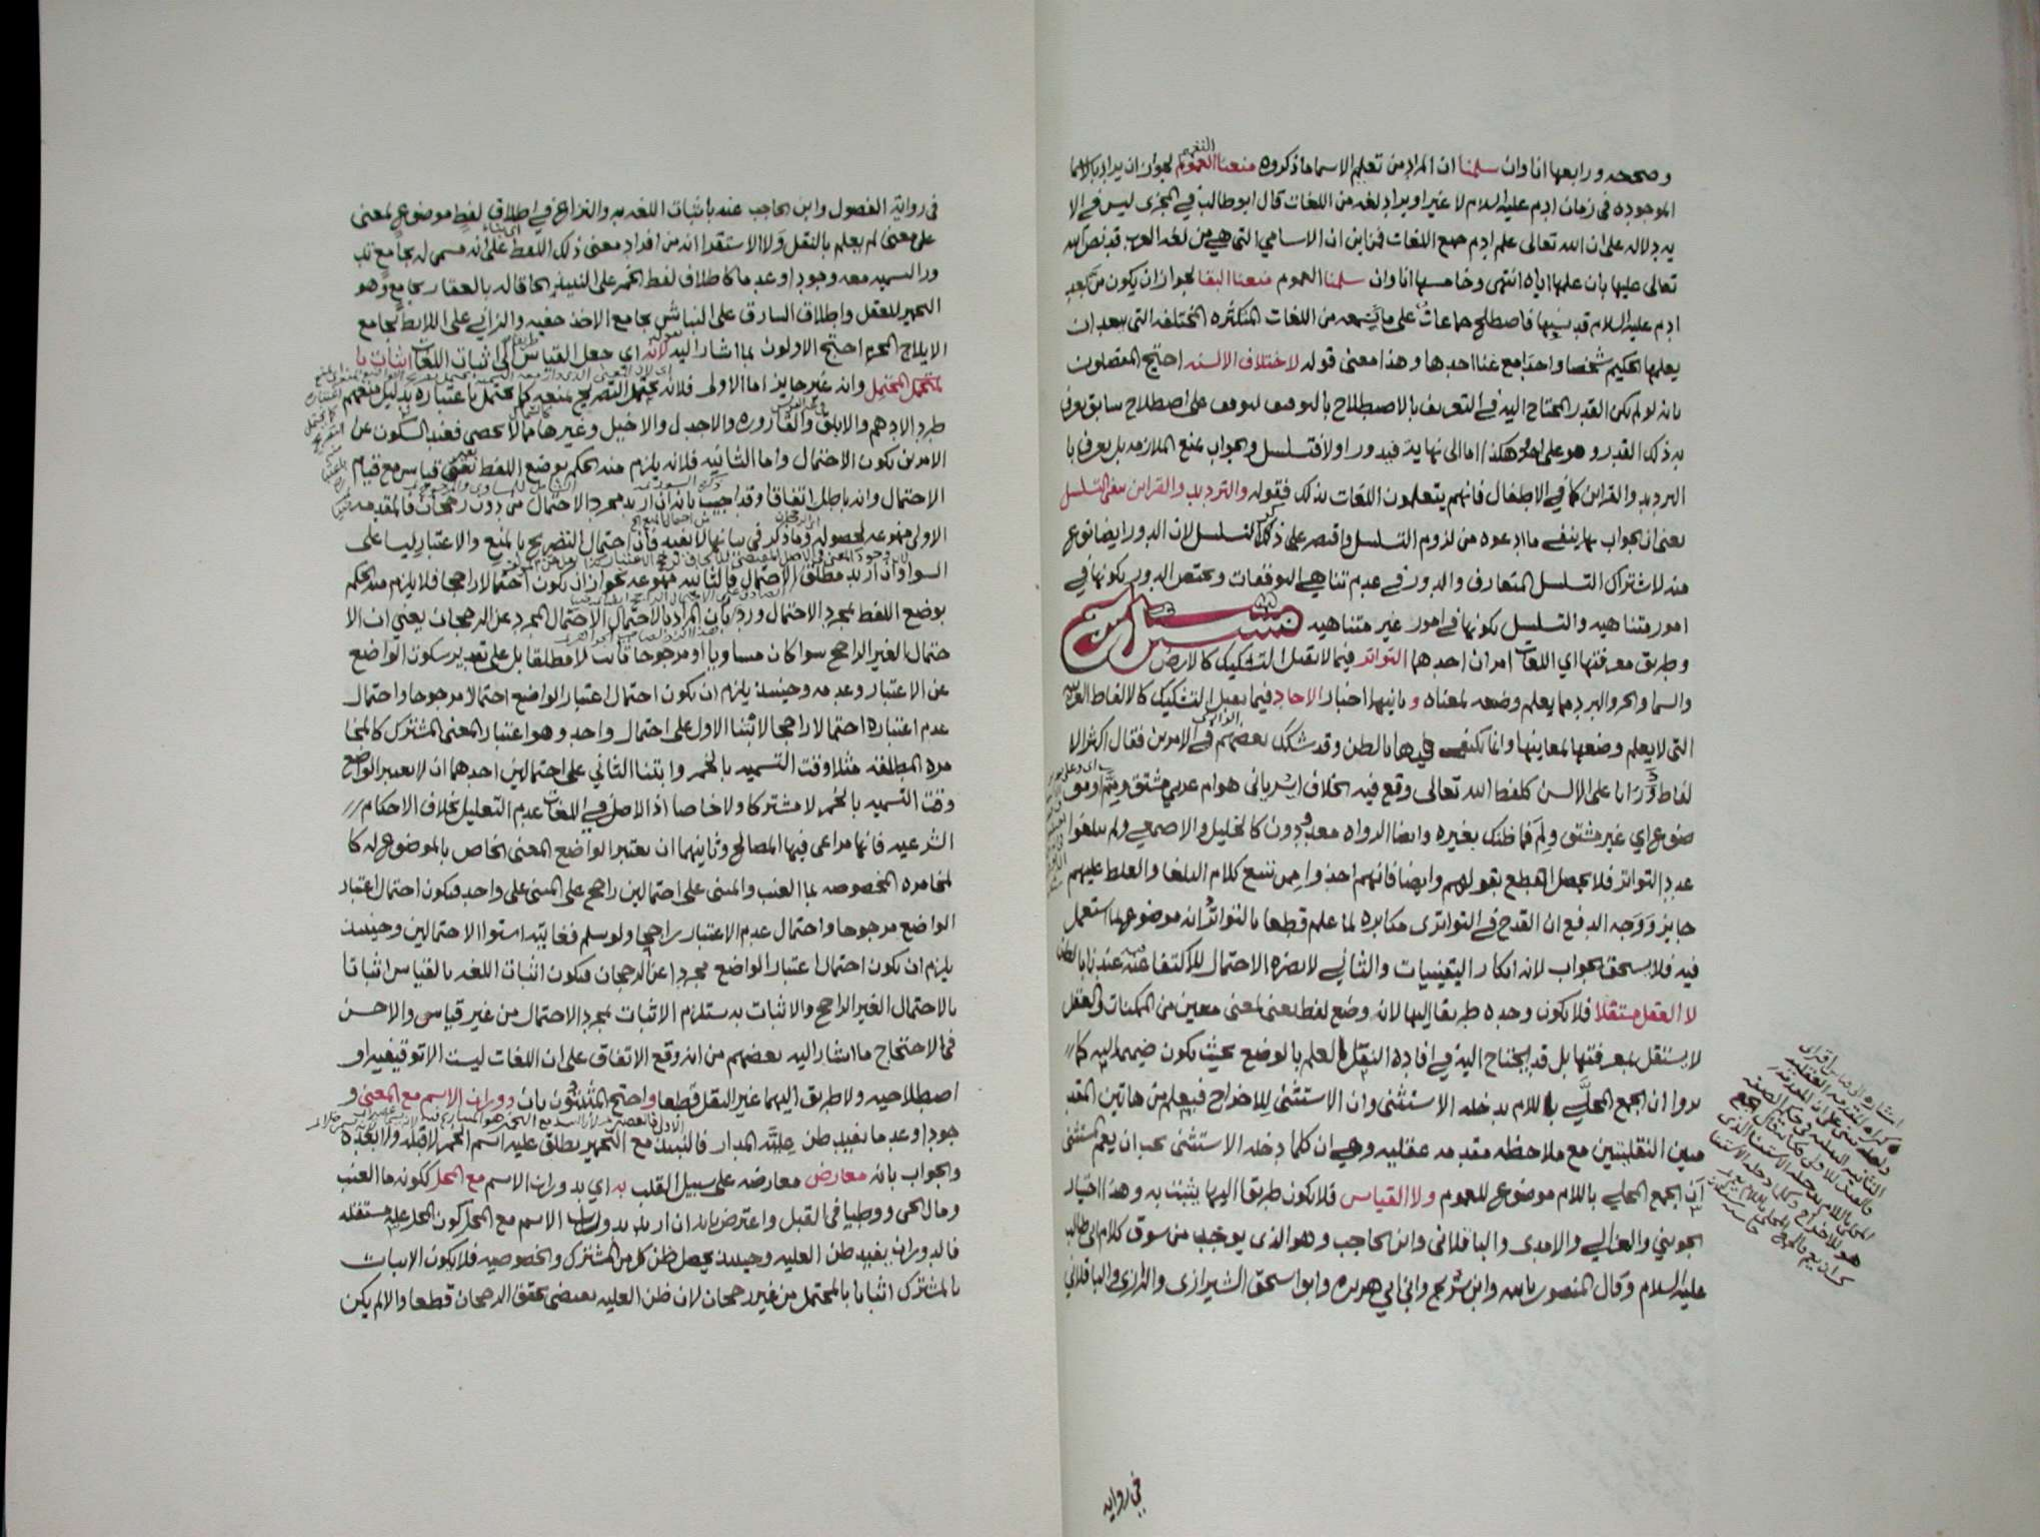 وصححه ورابعها انا وان سلمنا ان المراد من تعليم الاسما ما ذكروه منعنا العموم لجواز ان يراد بالاسما
الموجوده في زمان ادم عليه السلام لا غير او يراد لغه من اللغات قال ابو طالب في المجزى ليس في الا
يه دلاله على ان الله تعالى علم ادم جميع اللغات فمن اين ان الاسامي التي هي من لغه العرب قد نص الله
تعالى عليها بان علمها اياه انتهى وخامسها انا وان سلمنا العموم فمنعنا البقا لجواز ان يكون من بعد
ادم عليه السلام قد نسيها فاصطلح جماعات على ما يجمعه من اللغات المتكثره المختلفه التي يبعد ان
يعلمها الحكيم شخصا واحدا مع غنا احدها وهذا معنى قوله لاختلاف الالسنه احتج المفصلون
بانه لو لم يكن القدر المحتاج اليه في التعريف بالاصطلاح بالتوقيف لتوقف على اصطلاح سابق يعرف
به ذلك القدر وهو على اخر وهكذا اما الى نهاية فيدور او لا فتسلسل والجواب بمنع الملازمه بل يعرف با
الترديد والقراين كما في الاطفال فانهم يتعلمون اللغات بذلك فقوله والترديد والقراين ينفي التسلسل
يعني ان الجواب بهما ينفي ما ادعوه من لزوم التسلسل واقتصر على ذكر التسلسل لان الدور ايضا نوع
منه لاشتراك التسلسل المتعارف والدور في عدم تناهي التوقفات ويختص الدور بكونها في
امور متناهيه والتسلسل بكونها في امور غير متناهيه
وطريق معرفتها اي اللغات امران احدهما التواتر فيما لا يقبل التشكيك كالارض
والسما والحر والبرد مما يعلم وضعه لمعناه وثانيهما اخبار الاحاد فيما يقبل التشكيك كالالفاظ الغريبه
التي لا يعلم وضعها لمعانيها وانما يكتفى فيها بالظن وقد شكك بعضهم في الامرين فقال اكثر الا
لفاظ دورانا على الالسن كلفظ الله تعالى وقع فيه الخلاف اسرياني هو ام عربي مشتق ومم او مو
ضوع اي غير مشتق ولم فما ظنك بغيره وايضا الرواه معدودون كالخليل والاصمعي ولم يبلغوا
عدد التواتر فلا يحصل القطع بقولهم وايضا فانهم اخذوا من تتبع كلام البلغا والغلط عليهم
جايز ووجه الدفع ان القدح في التواترى مكابره لما علم قطعا بالتواتر انه موضوع لما استعمل
فيه فلا يستحق الجواب لانه انكار اليقينيات والثاني لا يضره الاحتمال للاكتفا فيه عندنا بالظن
لا العقل مستقلا فلا يكون وحده طريقا اليها لانه وضع لفظ يعني لمعنى معين من الممكنات والعقل
لا يستقل بمعرفتها بل قد يحتاج اليه في افادة النقل العلم بالوضع بحيث يكون ضميمه اليه كما
روا ان الجمع المحلى باللام يدخله الاستثنى وان الاستثنى للاخراج فيعلم من هاتين المقد
متين النقليتين مع ملاحظه مقدمه عقليه وهي ان كلما دخله الاستثنى يجب ان يعم المستثنى
ان الجمع المحلى باللام موضوع للعموم ولا القياس فلا يكون طريقا اليها يثبت به وهذا اختيار
الجويني والغزالي والامدى والباقلاني وابن الحاجب وهو الذى يوخذ من سوق كلام ابي طالب
عليه السلام وقال المنصور بالله وابن سريج وابن ابي هريره وابو اسحق الشيرازى والرازى والباقلاني
في رواية
في رواية الفصول وابن الحاجب عنه باثبات اللغه به والنزاع في اطلاق لفظ موضوع لمعنى
على معنى لم يعلم بالنقل ولا الاستقرا انه من افراد معنى ذلك اللفظ على انه مسمى له بجامع تد
ور التسميه معه وجودا وعدما كاطلاق لفظ الخمر على النبيذ الحاقا له بالعقار بجامع وهو
التخمير للعقل واطلاق السارق على النباش بجامع الاخذ خفيه والزاني على اللايط بجامع
الايلاج المحرم احتج الاولون بما اشار اليه بقوله لانه اي جعل القياس طريقا الى اثبات اللغات اثبات با
لمحتمل المحتمل وانه غير جايز اما الاولى فلانه يحتمل التصريح بمنعه كما يحتمل باعتباره بدليل منعهم
طرد الادهم والابلق والقاروره والاجدل والاخيل وغيرها مما لا يحصى فعند السكوت عن
الامرين يكون الاحتمال واما الثانيه فلانه يلزم منه الحكم بوضع اللفظ بغير قياس مع قيام
الاحتمال وانه باطل اتفاقا وقد اجيب بانه ان اريد مجرد الاحتمال من دون رجحان فالمقدمه
الاولى ممنوعه لحصوله وما ذكر في بيانها لا يفيد فان احتمال التصريح بالمنع والاعتبار ليسا على
السوا وان اريد مطلق الاحتمال فالثانيه ممنوعه لجواز ان يكون احتمالا راجحا فلا يلزم منه الحكم
بوضع اللفظ بمجرد الاحتمال ورد بان المراد بالاحتمال الاحتمال المجرد عن الرجحان يعني ان الا
حتمال الغير الراجح سوا كان مساويا او مرجوحا ثابت لا مطلقا بل على تقدير سكوت الواضع
عن الاعتبار وعدمه وحينئذ يلزم ان يكون احتمال اعتبار الواضع احتمالا مرجوحا واحتمال
عدم اعتباره احتمالا راجحا لابتنا الاول على احتمال واحد وهو اعتبار المعنى المشترك كالمخا
مره المطلقه مثلا وقت التسميه بالخمر وابتنا الثاني على احتمالين احدهما ان لا يعتبر الواضع
وقت التسميه بالخمر لا مشتركا ولا خاصا اذ الاصل في اللغات عدم التعليل بخلاف الاحكام
الشرعيه فانها مراعى فيها المصالح وثانيهما ان يعتبر الواضع المعنى الخاص بالموضوع له كا
لمخامره المخصوصه بما العنب والمبنى على احتمالين راجح على المبنى على واحد فيكون احتمال اعتبار
الواضع مرجوحا واحتمال عدم الاعتبار راجحا ولو سلم فغايته استوا الاحتمالين وحينئذ
يلزم ان يكون احتمال اعتبار الواضع مجردا عن الرجحان فيكون اثبات اللغه بالقياس اثباتا
بالاحتمال الغير الراجح والاثبات به يستلزم الاثبات بمجرد الاحتمال من غير قياس والاحسن
في الاحتجاج ما اشار اليه بعضهم من انه وقع الاتفاق على ان اللغات ليست الا توقيفيه او
اصطلاحيه ولا طريق اليهما غير النقل قطعا واحتج المثبتون بان دوران الاسم مع المعنى و
جودا وعدما يفيد ظن عليته المدار فالنبيذ مع التخمير يطلق عليه اسم الخمر لا قبله ولا بعده
والجواب بانه معارض معارضه على سبيل القلب به اي بدوران الاسم مع المحل ككونه ما العنب
ومال الحي ووطيا في القبل واعترض بانه ان اريد بدوران الاسم مع المحل كون المحل عله مستقله
فالدوران يفيد ظن العليه وحينئذ يحصل ظن كل من المشترك والخصوصيه فلا يكون الاثبات
بالمشترك اثباتا بالمحتمل من غير رجحان لان ظن العليه يقتضي تحقق الرجحان قطعا والا لم يكن